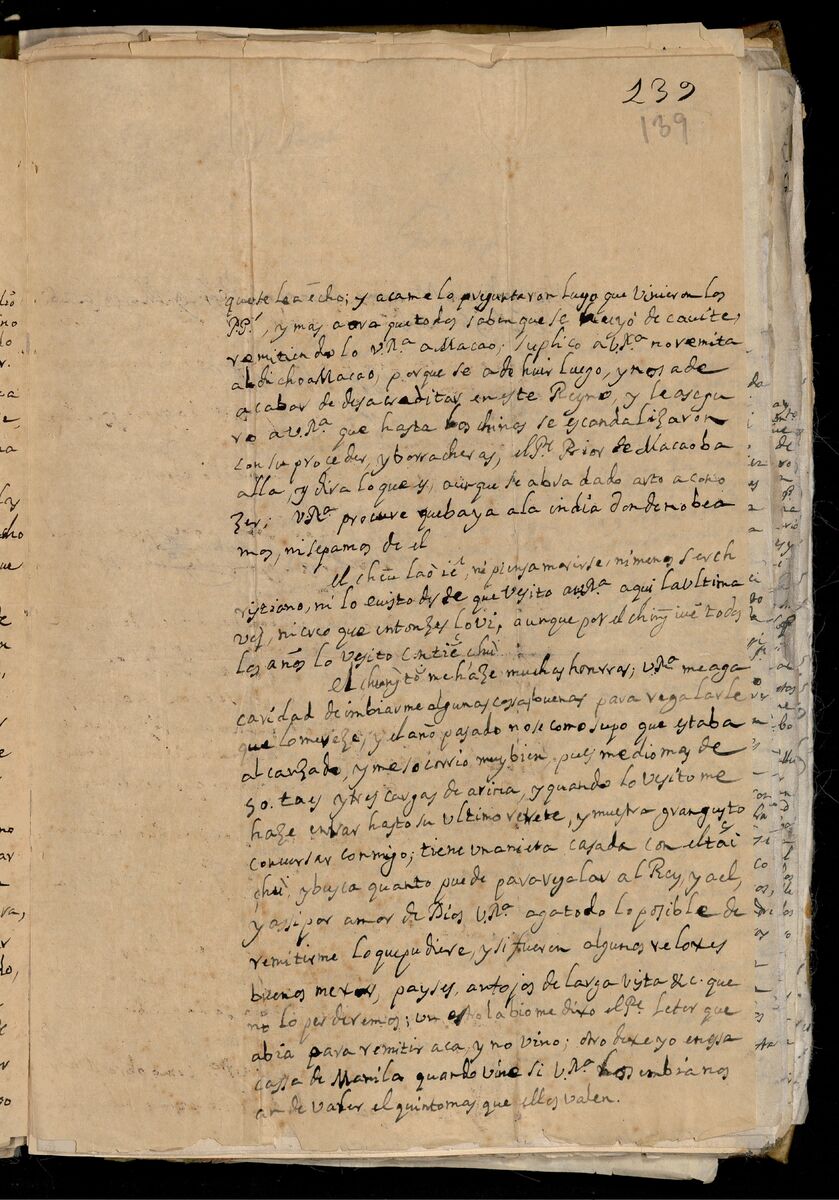 239
139
que se le a echo; y aca me lo preguntaron luego que vinieron los
P.Pˢ, y mas aora que todos saben que se huyó de cavite,
remitiendo lo V.Rª a Macao; suplico a V.Rª no remita
al dicho a Macao, porque se a de huir luego, y nos a de
acabar de desacreditar en este Reyno, y le asegu
ro a V.Rª que hasta los chinos se escandalizaron
con su proceder, y borracheras, el Pᵉ Prior de Macao ba
alla, y dira lo que ay, aunque se abra dado arto a cono
zer; V.Rª procure que baya a la india donde no bea
mos, ni sepamos de el
el cheu lao ie, ni piensa morirse, ni menos ser ch
ristiano, ni lo e visto desde que vesito a V.Rª aqui la ultima
vez, ni creo que entonzes lo vi, aunque por el todos
los años lo vesito
el me haze muchas honrras; V.Rª me aga
caridad de imbiarme algunas cosas buenas para regalarle
que lo mereze, y el año pasado no se como supo que estaba
alcanzado, y me socorrio muy bien, pues me dio mas de
30. taes y tres cargas de arina, y quando lo vesito me
haze entrar hasta su ultimo retrete, y muestra gran gusto
conversar conmigo; tiene una nieta casada con el tái
chu, y busca quanto puede para regalar al Rey, y a el,
y assi por amor de Dios V.Rª aga todo lo posible de
remitirme lo que pudiere, y si fueren algunos reloxes
buenos mexor, payses, antojos de larga vista &c. que
no lo perderemos; un estrolabio me dixo el Pᵉ Letor que
abia para remitir aca, y no vino; otro dexe yo en essa
cassa de Manila quando vine si V.Rª los embia nos
an de valer el quintomas que ellos valen.